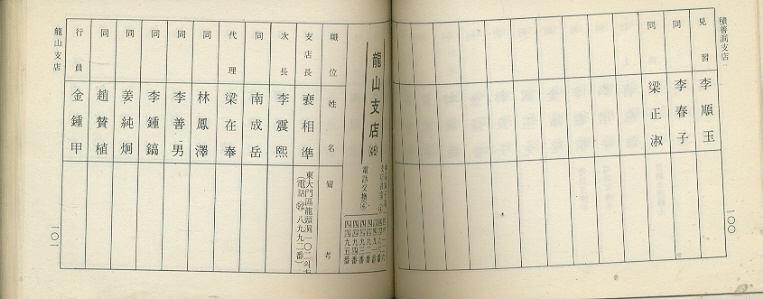 積善洞支店
見習 李順玉
同 李春子
同 梁正淑
一〇〇
龍山支店
職位 姓名 備考
支店長 裵相準 東大門區龍頭洞一〇二의七
(電話 八九九二番)
次長 李震熙
同 南成岳
代理 梁在奉
同 林鳳澤
同 李善男
同 李鍾鎬
同 姜純炯
同 趙賛植
行員 金鍾甲
龍山支店
一〇一